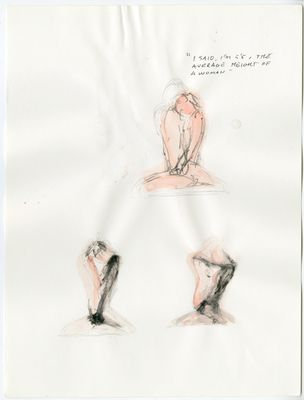 "I SAID, I'M 5'5, THE
AVERAGE HEIGHT OF
A WOMAN"